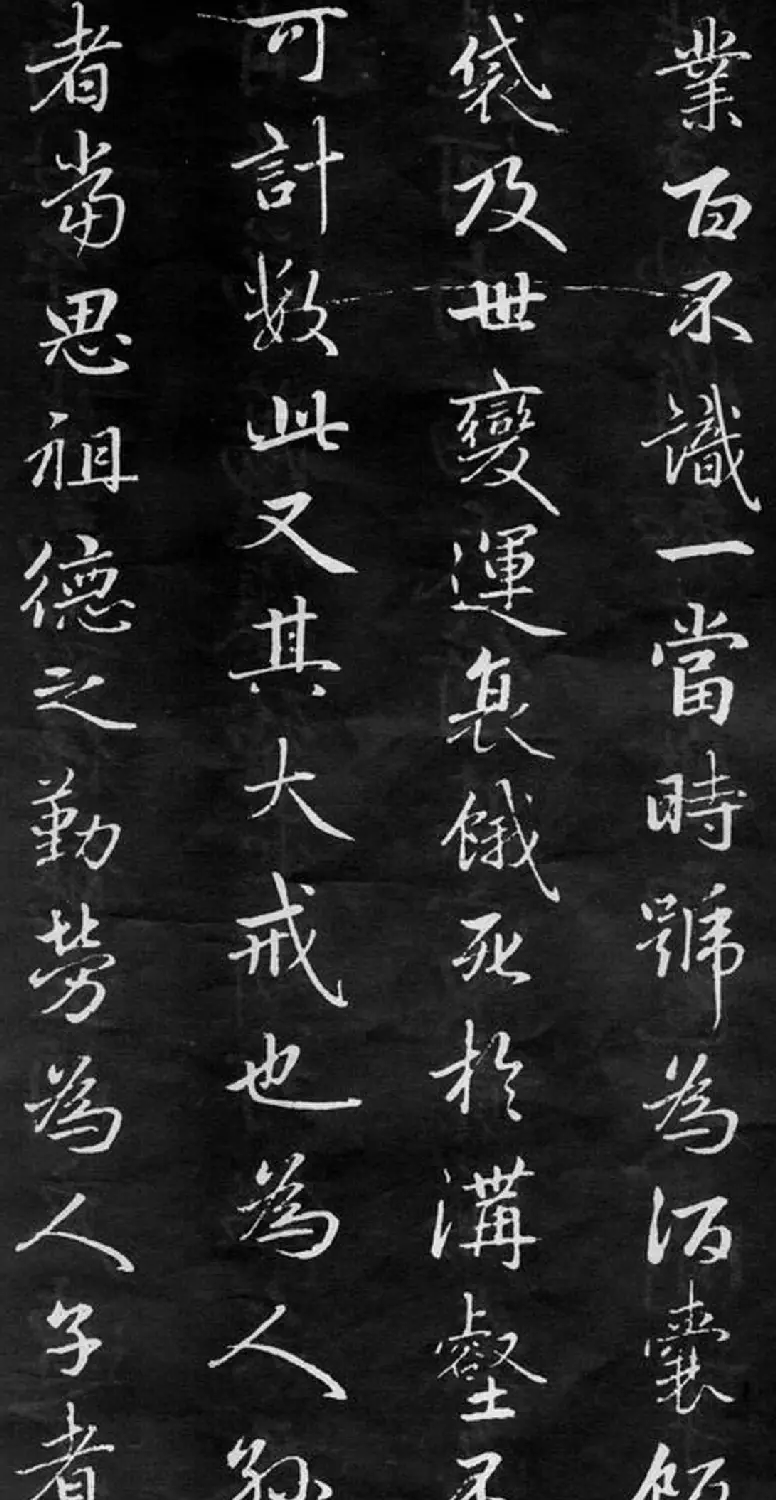 業百不識一當時號為酒囊飯
袋及世變運衰餓死於溝壑不
可計數此又其大戒也為人孫
者當思祖德之勤勞為人子者